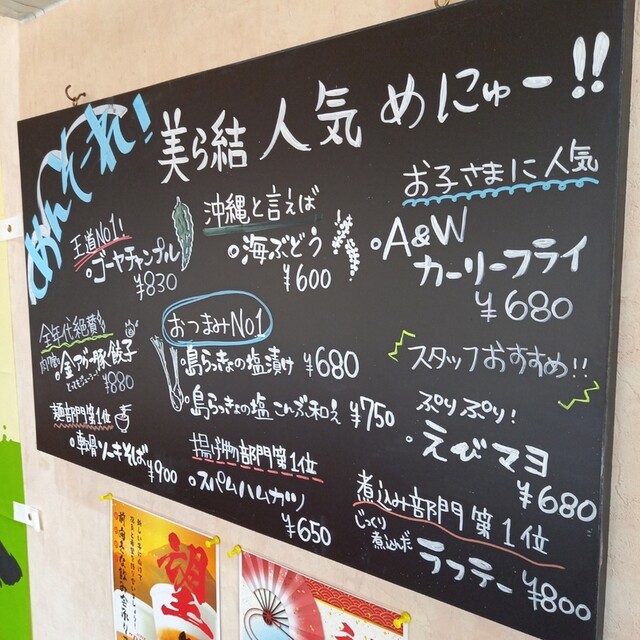 めんそーれ!
美ら結 人気 めにゅー!!
王道No1!
・ゴーヤチャンプル
¥830
沖縄と言えば
・海ぶどう
¥600
お子さまに人気
・A&W
カーリーフライ
¥680
全年代絶賛
・金アグー豚餃子
¥880
おつまみNo.1
・島らっきょの塩漬け ¥680
・島らっきょの塩こんぶ和え ¥750
スタッフおすすめ!!
ぷりぷり!
・えびマヨ
¥680
麺部門第1位
・軟骨ソーキそば
¥900
揚げ物部門第1位
・スパムハムカツ
¥650
煮込み部門第1位
じっくり
煮込んだ
ラフテー
¥800
望